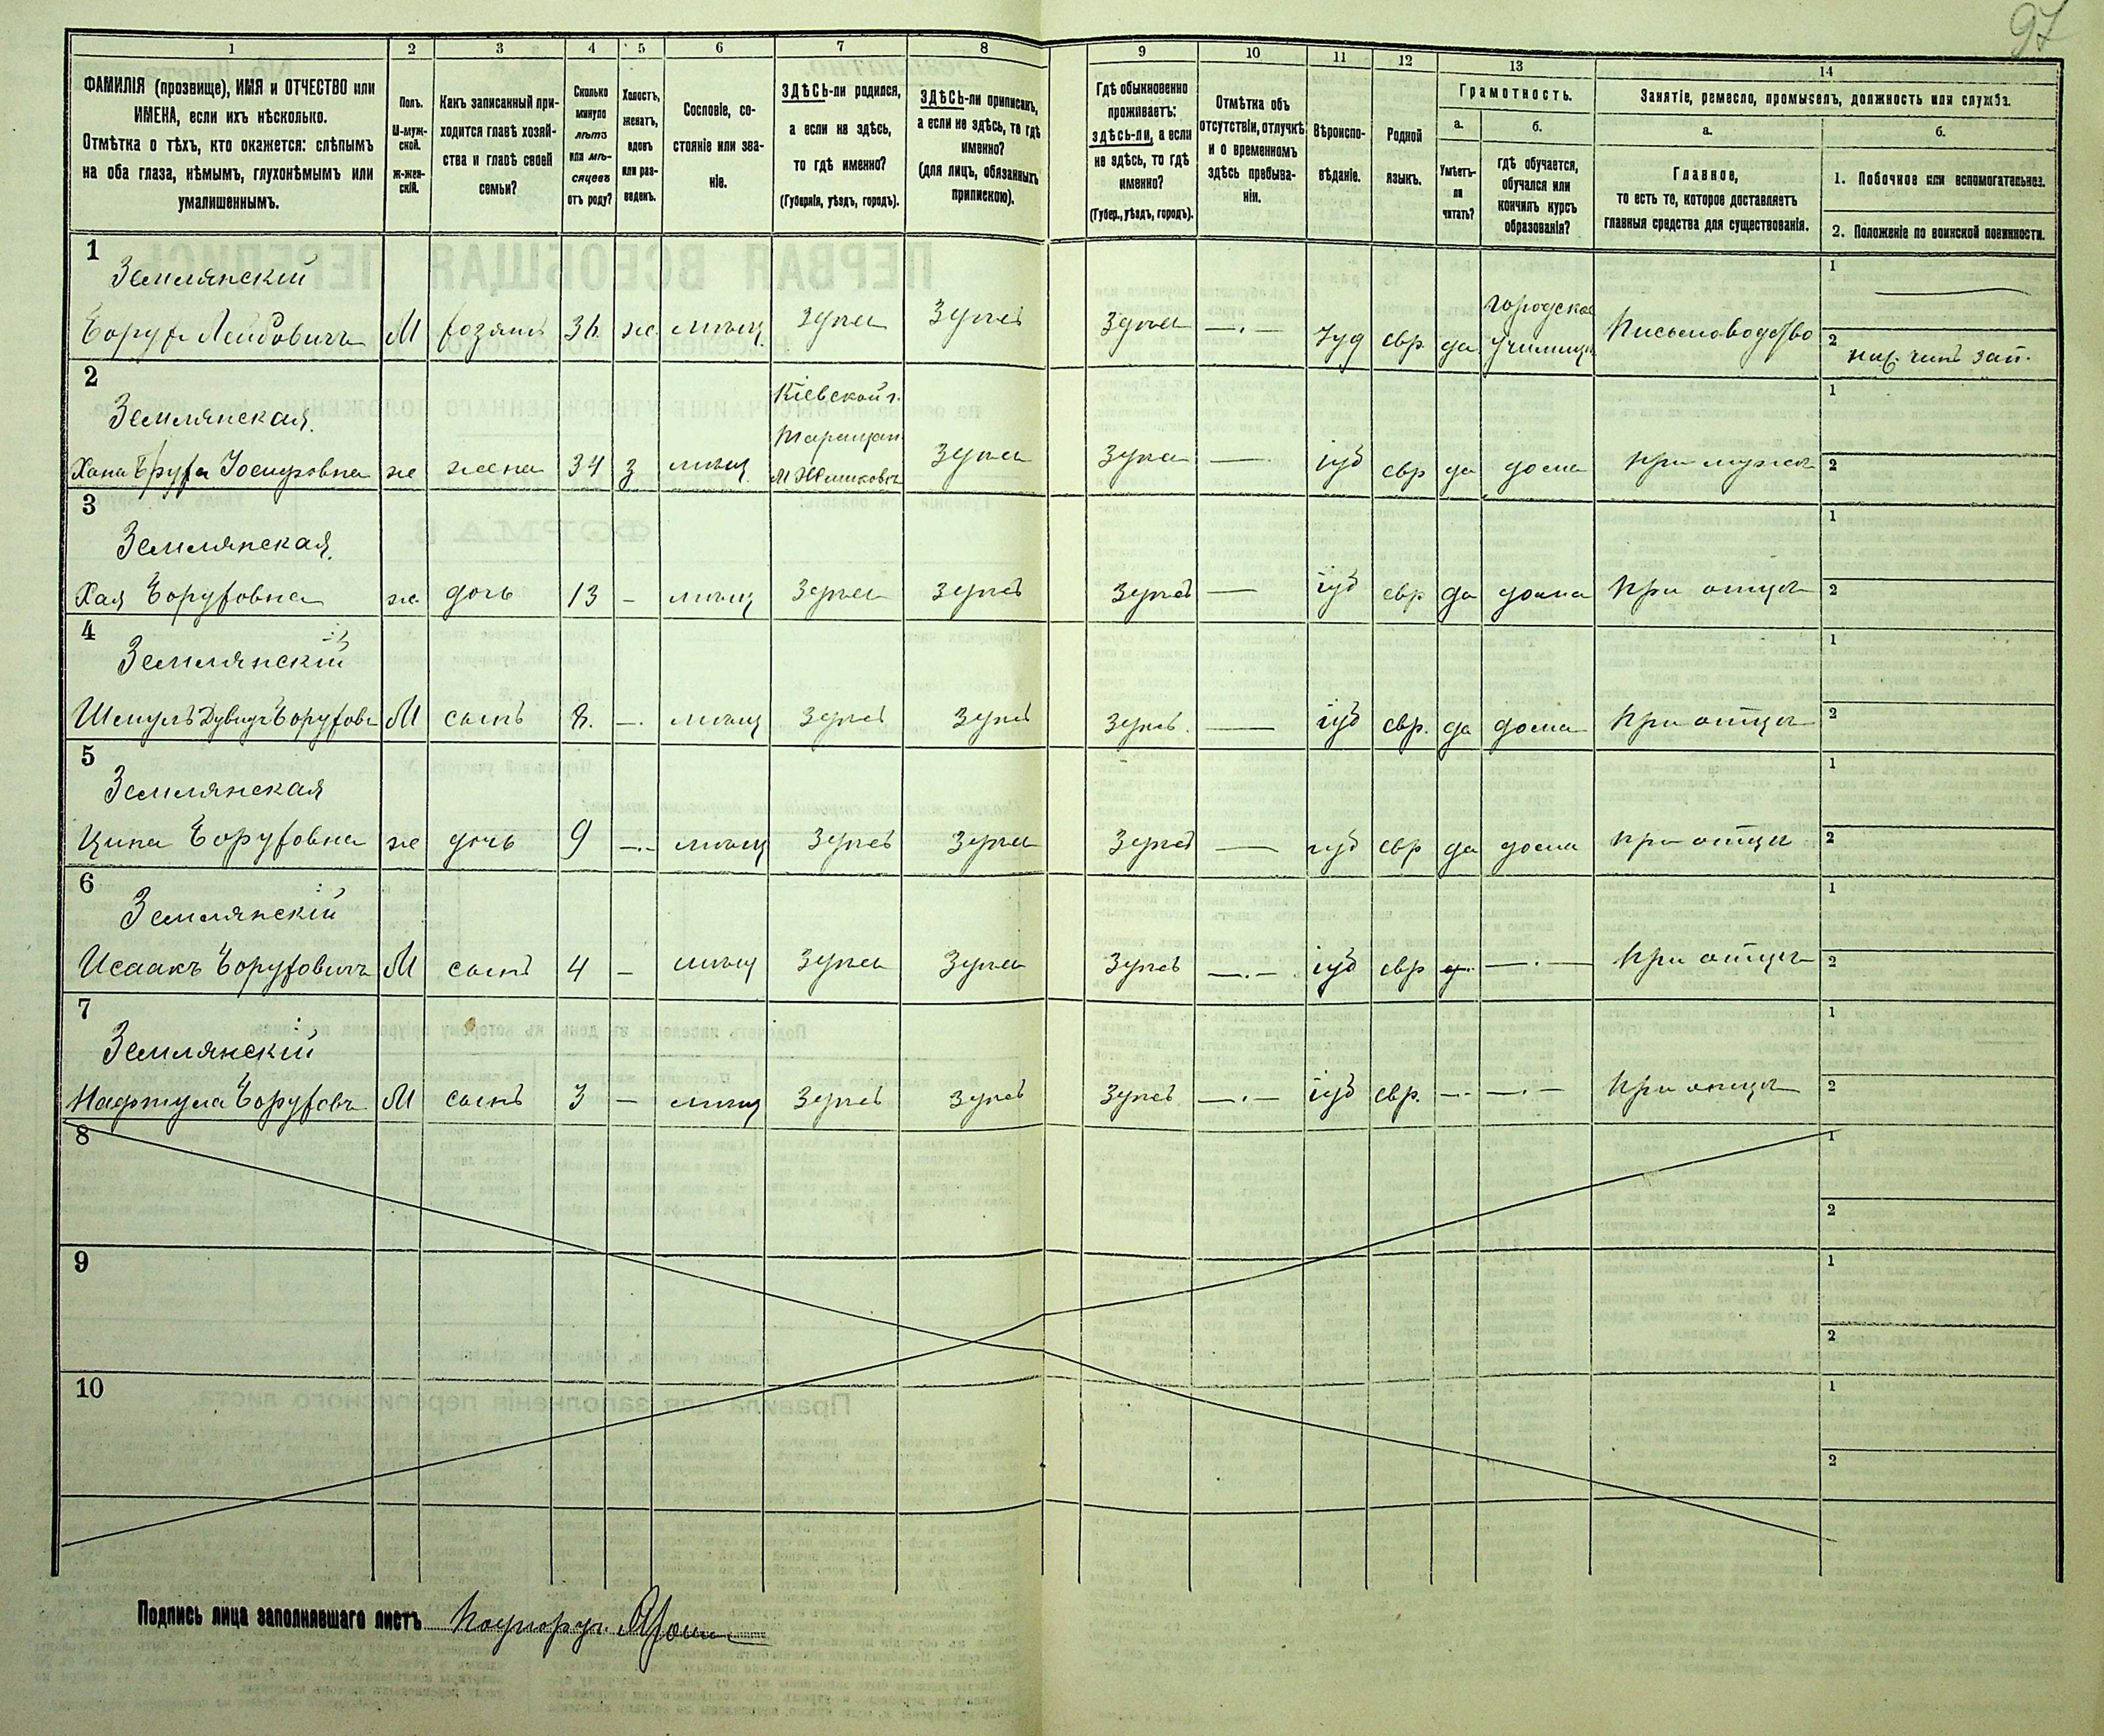 97
1 2 3 4 5 6 7 8 9 10 11 12 13 14
ФАМИЛІЯ (прозвище), ИМЯ и ОТЧЕСТВО или
ИМЕНА, если ихъ нѣсколько.
Отмѣтка о тѣхъ, кто окажется: слѣпымъ
на оба глаза, нѣмымъ, глухонѣмымъ или
умалишеннымъ.
Полъ.
М-муж-
ской.
Ж-жен-
скій.
Какъ записанный при-
ходится главѣ хозяй-
ства и главѣ своей
семьи?
Сколько
минуло
лѣтъ
или мѣ-
сяцевъ
отъ роду?
Холостъ,
женатъ,
вдовъ
или раз-
веденъ.
Сословіе, со-
стояніе или зва-
ніе.
ЗДѢСЬ-ли родился,
а если не здѣсь,
то гдѣ именно?
(Губернія, уѣздъ, городъ).
ЗДѢСЬ-ли приписанъ,
а если не здѣсь, то гдѣ
именно?
(для лицъ, обязанныхъ
припискою).
Гдѣ обыкновенно
проживаетъ:
здѣсь-ли, а если
не здѣсь, то гдѣ
именно?
(Губер., уѣздъ, городъ).
Отмѣтка объ
отсутствіи, отлучкѣ
и о временномъ
здѣсь пребыва-
ніи.
Вѣроиспо-
вѣданіе.
Родной
языкъ.
Грамотность.
а.
Умѣетъ-
ли
читать?
б.
гдѣ обучается,
обучался или
кончилъ курсъ
образованія?
Занятіе, ремесло, промыселъ, должность или служба.
а.
Главное,
то есть то, которое доставляетъ
главныя средства для существованія.
б.
1. Побочное или вспомогательное.
2. Положеніе по воинской повинности.
1
Землянскій
М хозяинъ 36. ж. мѣщ. Здѣсь Здѣсь Здѣсь —.— Іуд евр да
городское
училище
Письмоводство
1
2
ниж. чинъ зап.
2
Землянская.
же жена 34 з мѣщ.
Кіевской г.
Таращан
Здѣсь Здѣсь — іуд евр да дома при мужѣ
1
2
3
Землянская.
Хая Боруховна же дочь 13 – мѣщ Здѣсь Здѣсь Здѣсь — іуд евр да дома при отцѣ
1
2
4
Землянскій
М сынъ 8. —. мѣщ Здѣсь Здѣсь Здѣсь. — іуд евр. да дома при отцѣ
1
2
5
Землянская
Ципа Боруховна же дочь 9 —.– мѣщ Здѣсь Здѣсь Здѣсь — іуд евр да дома при отцѣ
1
2
6
Землянскій
Исаакъ Боруховичъ М сынъ 4 – мѣщ Здѣсь Здѣсь Здѣсь —.– іуд евр —.— при отцѣ
1
2
7
Землянскій
Нафтула Боруховъ М сынъ 3 – мѣщ Здѣсь Здѣсь Здѣсь —.– іуд евр. –.- –.– при отцѣ
1
2
8
1
2
9
1
2
10
1
2
Подпись лица заполнявшаго листъ